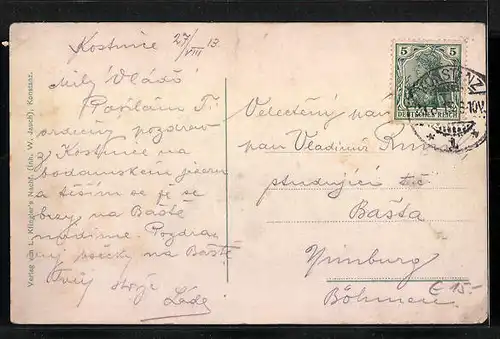 Kostnice 27/VIII 13
Milý Vláďo
Posílám Ti
srdečný pozdrav
z Kostnice na
bodamském jezeru
a těším se že se
brzy na Baště
uvidíme. Pozdrav
na Baště
Tvůj strýc
Láďa
Verlag von L. Klingler's Nachf. (Inh. W. Jauch), Konstanz.
5 5
DEUTSCHES REICH
KONSTANZ
1
Velectěný pan
pan Vladimír
studující
Bašta
Nimburg
Böhmen
€ 15-